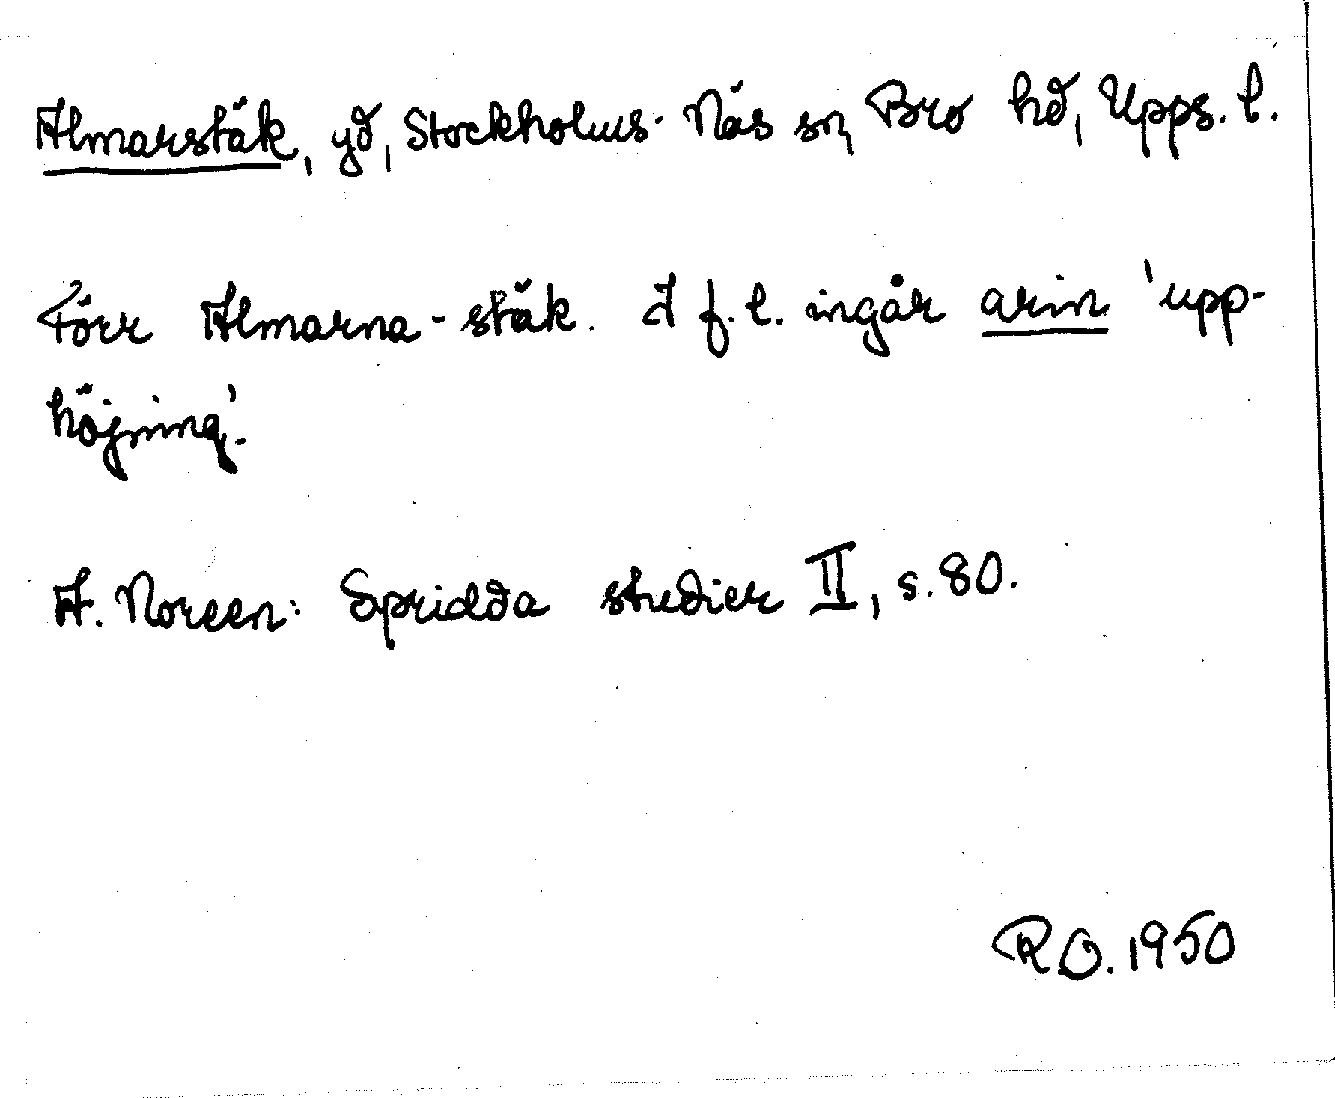 Almarstäk, gd, Stockholms-Näs sn, Bro hd, Upps. l.
Förr Almarna-stäk. I f.l. ingår arin 'upp-
höjning'.
A. Noreen: Spridda studier II, s. 80.
R O. 1950